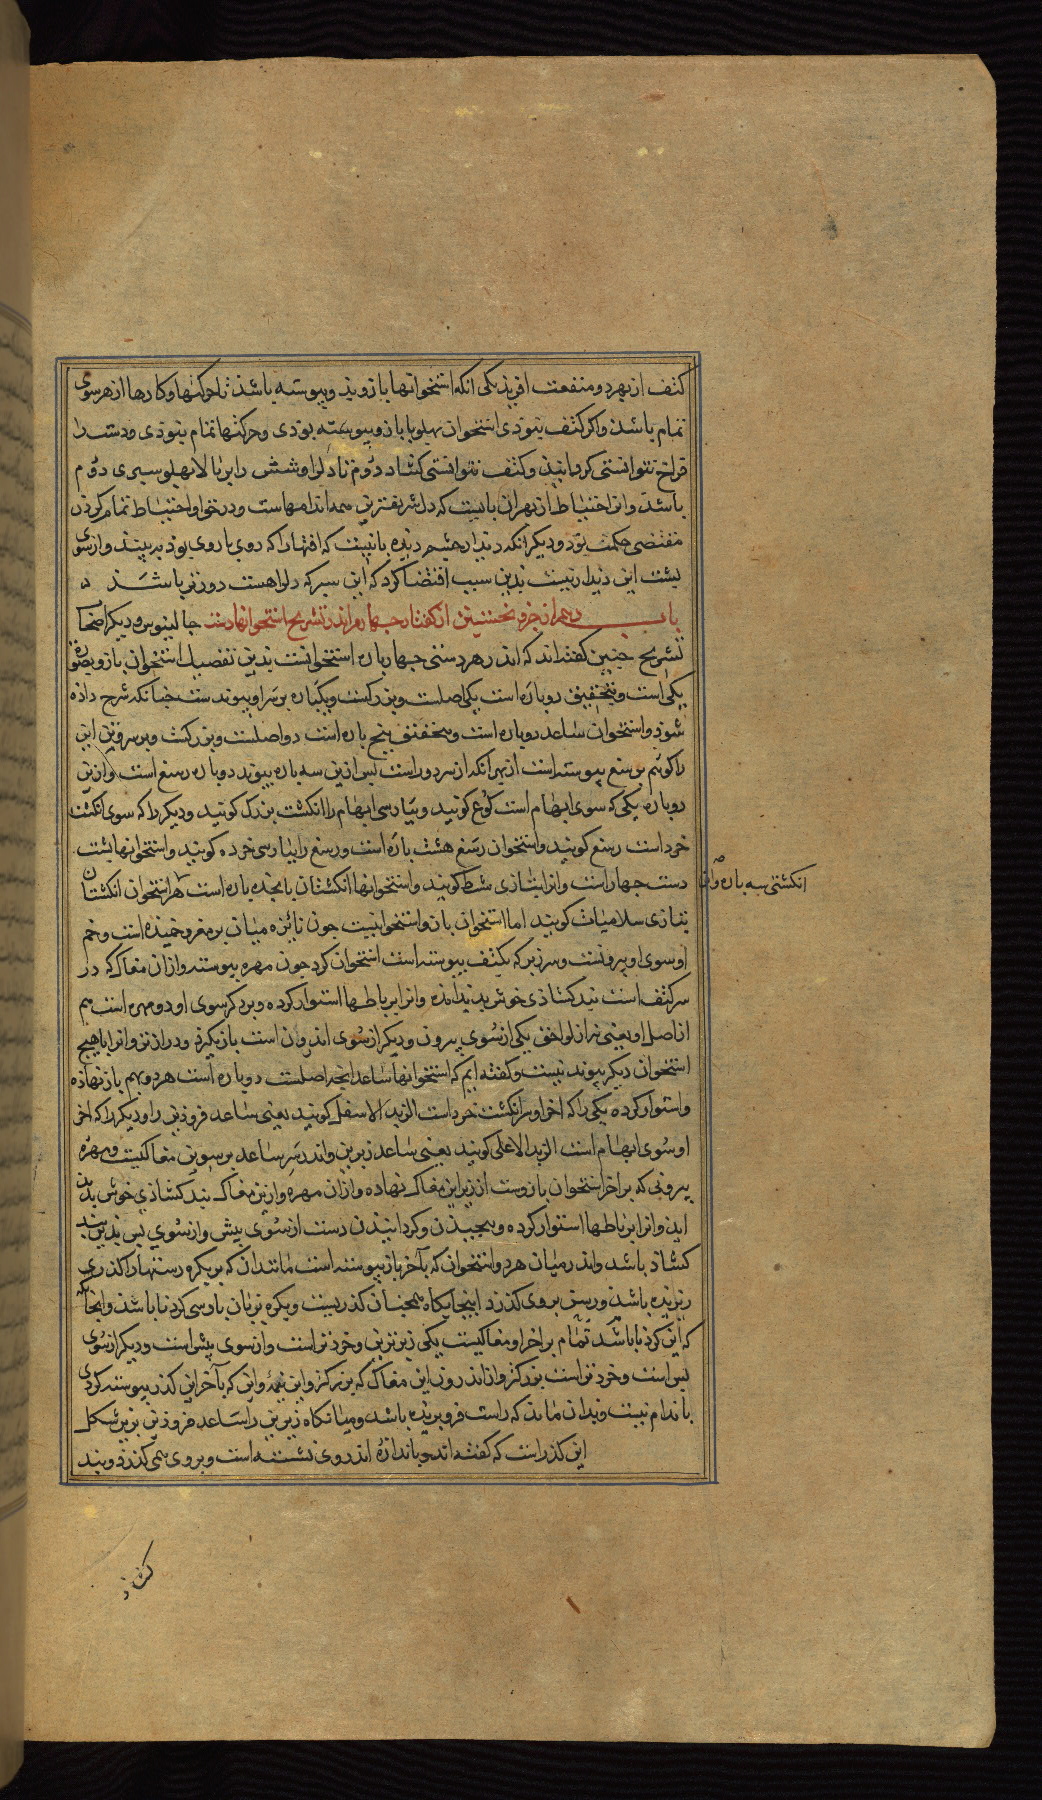 کتف از بهر دو منفعت افرید یکی انکه استخوانها بازو بذو پیوسته باشد تا حرکتها و کارها از هر سوی
تمام باشد و اگر کتف نبودی استخوان پهلو با بازو پیوسته بودی و حرکتها تمام نبودی و دست را
فراخ نتوانستی کردانیذ و کتف نتوانستی کشاد دوم تا دل را و شش را بر بالا پهلو سپری دوم
باشد و این احتیاط از بهر ان بایست که دل شریفترین همه اندامهاست و در حق او احتیاط تمام کردن
مقتضی حکمت بود و دیکر انکه دیدار چشم دیده بانیست که افتها را که روی با روی بود به بیند و از سوی
پشت این دیدار نیست بدین سبب اقتضا کرد که این سپر که دل را هست دو زنی باشد
باب دهم از جزو نخستین از کفتار چهارم اندر تشریح استخوانها دست جالینوس و دیکر اصحاب
تشریح چنین کفته اند که اندر هر دستی چهار پاره استخوانست بدین تفصیل استخوان بازو بصورة
یکی است و بتحقیق دو پاره است یکی اصلست و بزرکست و یکپاره بر سر او پیوندست چنانکه شرح داذه
شود و استخوان ساعد دو پاره است و بتحقیق پنج پاره است دو اصلست و بزرکست و بر سر فرودین این
را کوئیم بر رسغ پیوسته است از بهر انکه از سر دو راست پس ازین سه پاره پیوند دو پاره رسغ است و ازین
دو پاره یکی که سوی ابهام است کوع کویند و بپارسی ابهام را انکشت بزرک کویند و دیکر را که سوی انکشت
خرد است رسغ کویند و استخوان رسغ هشت پاره است و رسغ را بپارسی خرده کویند و استخوانها پشت
دست چهار است و انرا بتازی مشط کویند و استخوانها انکشتان پانجده پاره است هر استخوان انکشتان
انکشتی سه پاره و این
بتازی سلامیات کویند اما استخوان بازو استخوانیست چون نائزه میان پر مغز و خمیده است و خم
او سوی او بیرونست و سر زبر که بکتف پیوسته است استخوان کرد چون مهره پیوسته و از ان مغاک که در
سر کتف است بند کشاذی خوش بدید امذه و انرا برباطها استوار کرده و بر دکر سوی او دو مهره است هم
از اصل او یعنی نه از لواحق یکی از سوی بیرون و دیکر از سوی اندرون است باریکتر و درازتر و انرا با هیچ
استخوان دیکر پیوند نیست و کفته ایم که استخوانها ساعد انچه اصلست دو پاره است هر دو بهم باز نهاده
و استوار کرده یکی را که اخر او سر انکشت خرد است الزند الاسفل کویند یعنی ساعد فروذین را و دیکر را که اخر
او سوی ابهام است الزند الاعلی کویند یعنی ساعد زبرین و اندر سر ساعد برسوین مغاکیست و مهره
بیرونی که بر اخر استخوان بازوست اندرین مغاک نهاده و از ان مهره و ازین مغاک بند کشاذی خوش بدید
اید و انرا برباطها استوار کرده و بجنبیدن و کردانیدن دست از سوی پیش و از سوی پس بدین بند
کشاذ باشد و اندر میان هر دو استخوان که بآخر بازو پیوسته است مانند ان که بر بکره رسنها را کذری
رندیده باشد و رسن بر وی کذرد اینجایکاه همچنان کذریست و بکره بزبان پارسی کردنا باشد و انجا
که این کردنا باشد تمام بر اخر او مغاکیست یکی زبرترین و خردتر است و از سوی پیش است و دیکر از سوی
پس است و خردتر است بزرکتر و از اندرون این مغاک که بزرکتر و این نیمه و این که بآخر این کذر پیوسته کردی
باندام نیست و بدان ماند که راست فرو بریده باشد و میانکاه زبرین را ساعد فروذین بر شکل
این کذر است که کفته اند باندازه اندر وی نشسته است و بر وی همی کذرد و بند
کشاذ